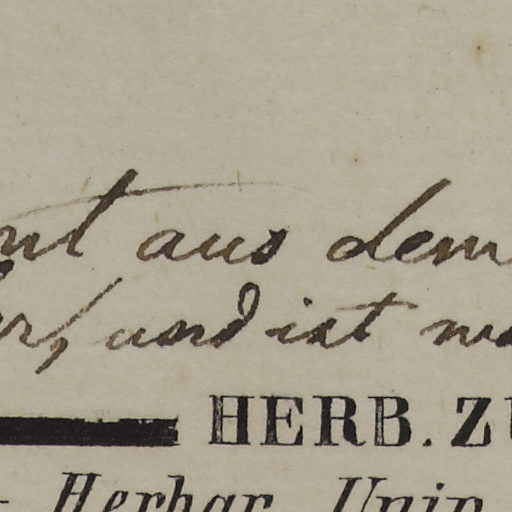 aus dem
und ist
HERB. ZU
Herbar. Univ.